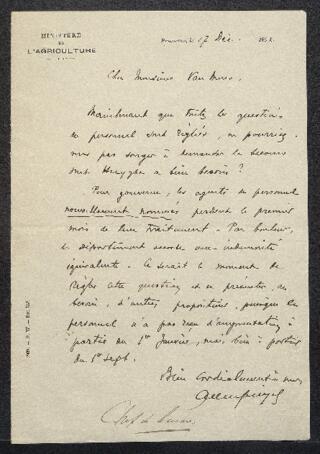 MINISTÈRE
DE
L'AGRICULTURE
17 Déc.
Cher Monsieur Van
Maintenant que toutes les questions
de personnel sont réglées, ne pourriez
vous pas songer à demander le secours
dont Huyghe a bien besoin ?
Pour gouverne, les agents du personnel
nouvellement nommés perdent le premier
mois de leur traitement. Par bonheur,
le département accorde une indemnité
équivalente. Ce serait le moment de
régler cette question et de présenter, au
besoin, d'autres propositions, puisque le
personnel n'a pas reçu d'augmentation à
partir du 1er Janvier, mais bien à partir
du 1er Sept.
Bien cordialement à vous
Chef de bureau